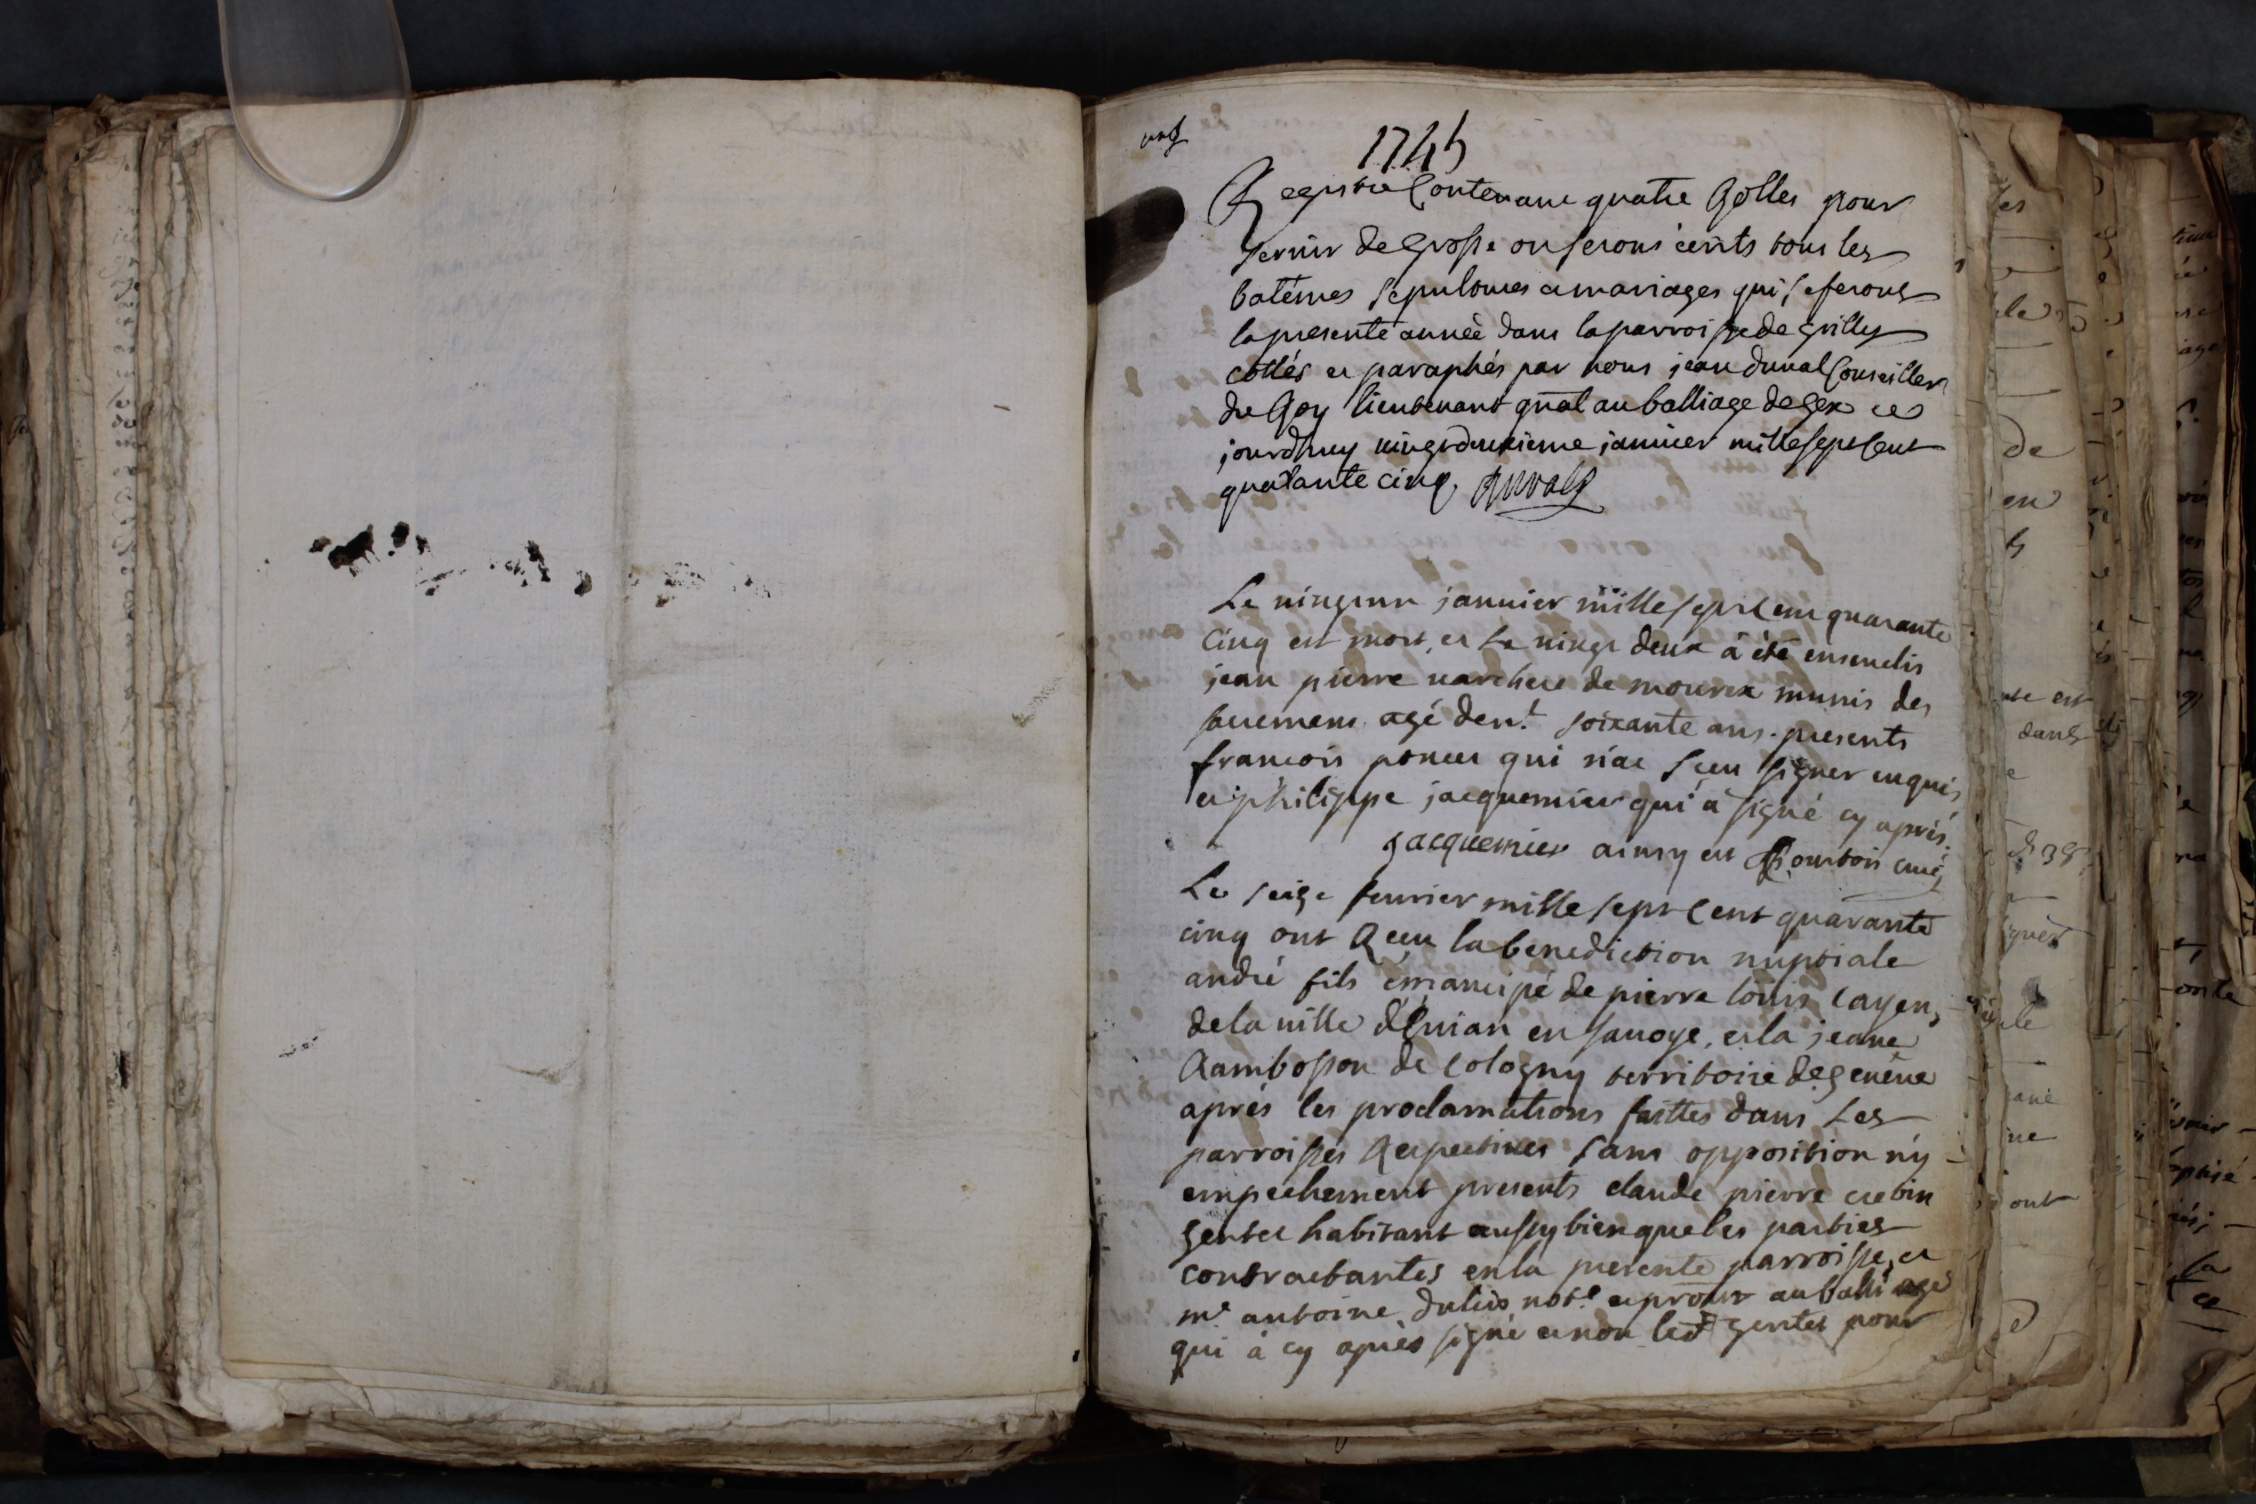 1745
Registre Contenant quatre Rolles pour
servir de Grosse ou seront écrits tous les
batémes sepultures et mariages qui se feront
la presente année dans la parroisse de Grilly
cottés et paraphés par nous jean duval Conseiller
du Roy lieutenant gñal au balliage de Gex ce
jourdhuy vingt deuxieme janvier mille sept Cent
quarante cinq. Duval
Le vingtun janvier mille sept cent quarante
cinq est mort, et Le vingt deux à été ensevelis
jean pierre de mourex munis des
sacremens agé denv.t soixante ans. presents
francois poncet qui n'at sceu signer enquis
et philippe jacquemier qui à signé cy aprés.
Jacquemier ainsy est Bourbon curé
Le seize fevrier mille sept Cent quarante
cinq ont Receu la benediction nuptiale
andré fils émancipé de pierre loüis Cayen,
de la ville d'Evian en savoye, et la jeane
Rambosson de Cologny territoire de geneve
aprés les proclamations faittes dans Les
parroisses Respectives sans opposition ny
empechement presents claude pierre
gentet habitant aussy bien que les parties
contractantes en la presente parroisse, et
m.e antoine not.e et proūr au balliage
qui à cy aprés signé et non led.t gentet pour
les
de
en
est
dans
ont